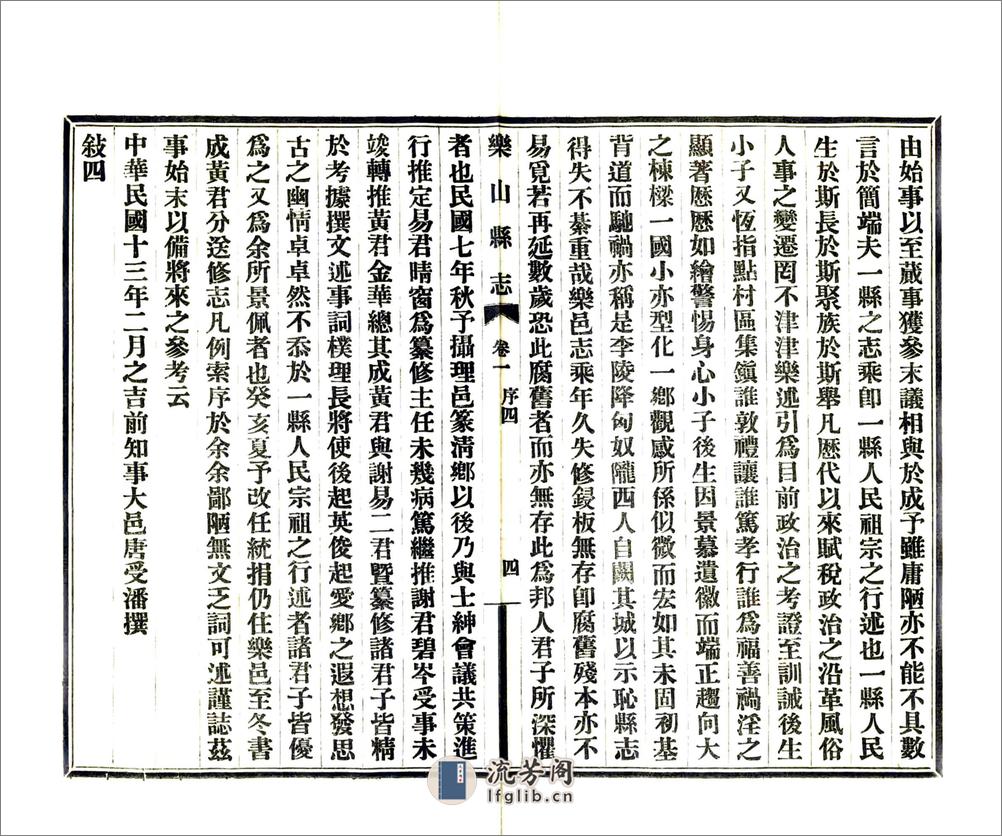 由始事以至蕆事獲參末議相與於成予雖庸陋亦不能不具數
言於簡端夫一縣之志乘卽一縣人民祖宗之行述也一縣人民
生於斯長於斯聚族於斯舉凡歷代以來賦稅政治之沿革風俗
人事之變遷罔不津津樂述引爲目前政治之考證至訓誡後生
小子又恆指點村區集鎭誰敦禮讓誰篤孝行誰爲福善禍淫之
顯著歷歷如繪警惕身心小子後生因景慕遺徽而端正趨向大
之棟樑一國小亦型化一鄉觀感所係似微而宏如其未固初基
背道而馳禍亦稱是李陵降匈奴隴西人自闕其城以示恥縣志
得失不綦重哉樂邑志乘年久失修鋟板無存卽腐舊殘本亦不
易覓若再延數歲恐此腐舊者而亦無存此爲邦人君子所深懼
樂山縣志
卷一
序四
四
者也民國七年秋予攝理邑篆淸鄉以後乃與士紳會議共策進
行推定易君晴窗爲纂修主任未幾病篤繼推謝君碧岑受事未
竣轉推黃君金華總其成黃君與謝易二君曁纂修諸君子皆精
於考據撰文述事詞樸理長將使後起英俊起愛鄉之遐想發思
古之幽情卓卓然不忝於一縣人民宗祖之行述者諸君子皆優
爲之又爲余所景佩者也癸亥夏予改任統捐仍住樂邑至冬書
成黃君分送修志凡例索序於余余鄙陋無文乏詞可述謹誌茲
事始末以備將來之參考云
中華民國十三年二月之吉前知事大邑唐受潘撰
敍四
流芳阁
lfglib.cn